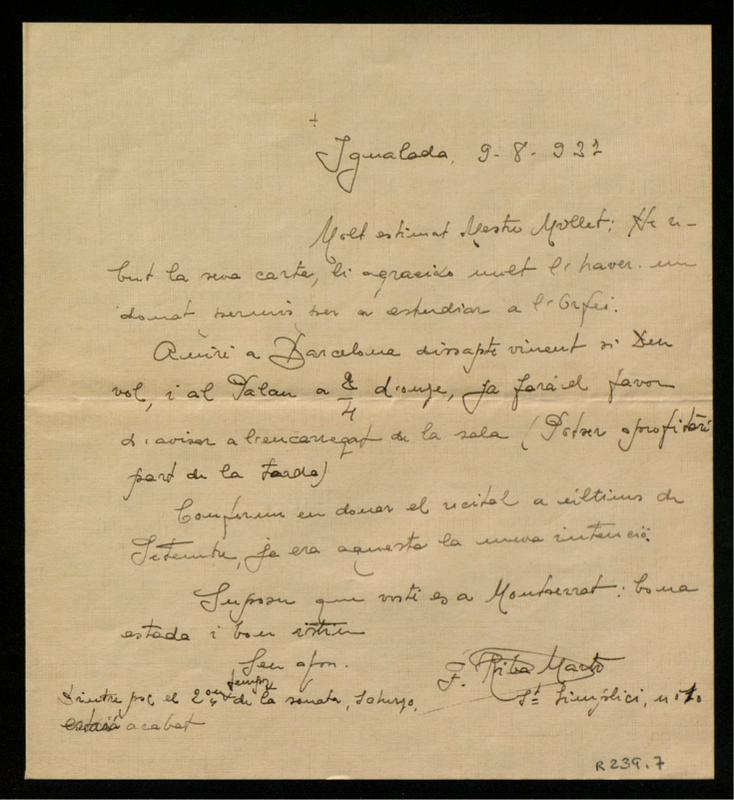 +
Igualada, 9-8-932
Molt estimat Mestre Millet: He re-
but la seva carta, li agraeixo molt l'haver-me
donat permís per a estudiar a l'Orfeó.
Aniré a Barcelona dissapte vinent si Deu
vol, i al Palau a 2/4 d'onze, ja farà el favor
d'avisar a l'encarregat de la sala (Potser aprofitaré
part de la tarda)
Conforme en donar el recital a últims de
Setembre, ja era aquesta la meva intenció.
Suposu que vosté es a Montserrat: bona
estada i bon
Seu afm.
F. Riba Martí
Dintre poc el 2on temps de la sonata, Scherzo,
St Simplici, nº 10
estarà acabat
R 239.7